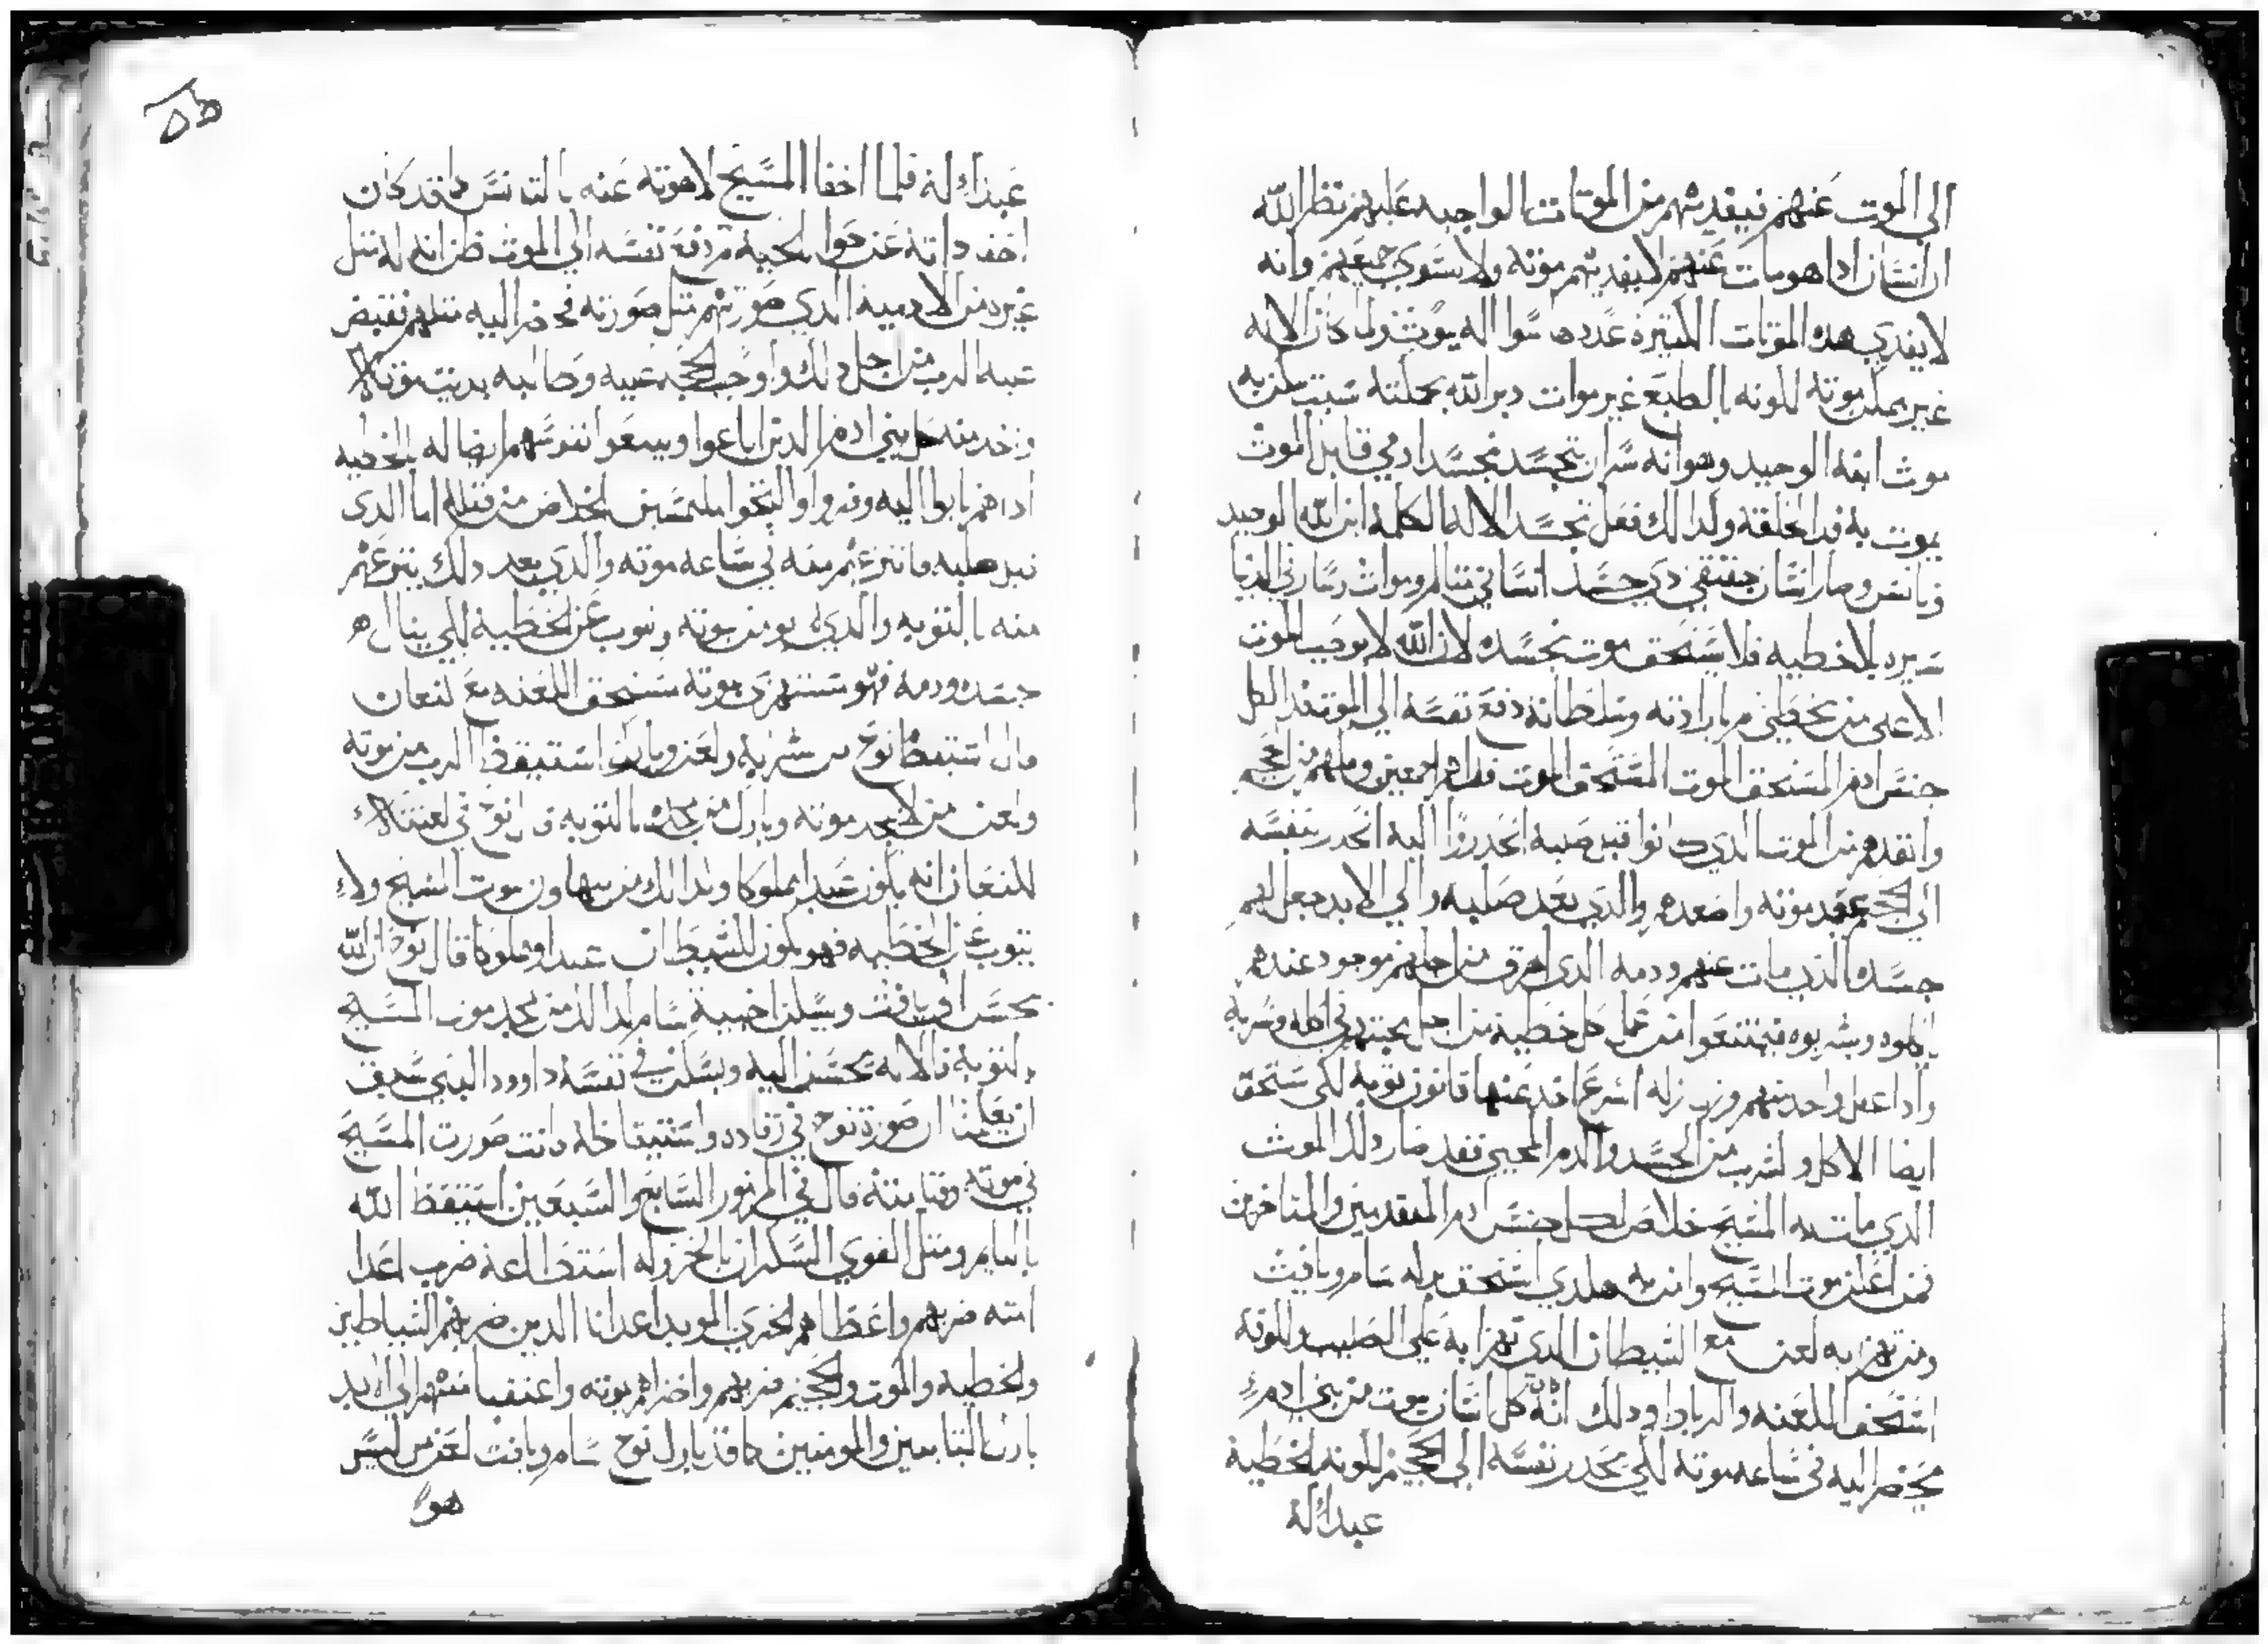 الى الموت عنهم فيفديهم من الموتات الواجبه عليهم نظر الله
ان انسان اذا هو مات عنهم لا يفديهم موته ولا يسوي جميعهم وانه
لا يفدي هده الموتات الكتيرة عددها سوا اله يموت ولما كان الاله
غير يمكن موته لكونه بالطبع غير موات دبر الله بحكمته سبب يمكن به
موت ابنه الوحيد وهو انه سر ان يتجسد بجسد ادمي قابل الموت
يموت به فدا لخلقته ولدالك فعل تجسد الاله الكلمه ابن الله الوحيد
وتانس وصار انسان حقيقي دي جسد انساني متالم وموات وسار في الدنيا
سيره بلا خطيه فلا يستحق موت بجسده لان الله لا يوجب الموت
الا على من يخطي تم بارادته وسلطانه دفع نفسه الي الموت فدا لكل
جنس ادم المستحق الموت المستحق الموت فداهم اجمعين وملهم من الجحيم
وانقدهم من الموت الدي كانوا قبل صلبه انحدروا اليه انحدر بنفسه
الي الجحيم عند موته واصعدهم والدي بعد صلبه والي الابد جعل لهم
جسده الدي مات عنهم ودمه الدي اهرق من اجلهم موجود عندهم
ياكلوه ويشربوه فيمتنعوا من عمل كل خطية من اجل محبتهم في اكله وشربه
وادا عمل واحد منهم وزل زله اسرع اخد عنها قانون توبه لكي يستحق
ايضا الاكل والشرب من الجسد والدم المحيي فقد صار دلك الموت
الدي مات به المسيح خلاص لكل جنس ادم المتقدمين والمتاخرين
فمن اعلن موت المسيح وامن به هلدي استحق بركه سام ويافت
ومن تهزا به لعن مع الشيطان الدي تهزا به على الصليب ولكونه
استحق اللعنه والرباط ودلك انه كان كل انسان يموت من بني ادم
يحضر اليه في ساعه موته لكي يحدر نفسه الي الجحيم لكونه بالخطية
عبدا له
عبدا له فلما اخفا المسيح لاهوته عنه بالتانس كما قد كان
اخفا داته عن حوا بالحيه تم دفع نفسه الي الموت ظن انه له متل
غيره من الادميه الدي صورتهم متل صورته فحضر اليه متلهم فقبض
عليه الرب من اجل دلك واوجب الحجه عليه وطالبه بديت موته
واخد منه كل بني ادم الدين اباعوا ويبيعوا نفوسهم ايضا له بالخطيه
اداهم تابوا اليه وفروا والتجوا ملتمسين الخلاص من قبله اما الدي
قبل صلبه فانتزعهم منه في ساعه موته والدي بعد دلك ينتزعهم
منه بالتوبه والدي لا يومن بموته ويتوب عن الخطية لكي ينال
جسده ودمه فهو مستهزي بموته مستحق اللعنه مع كنعان
قال استيقظ نوح من شربه ولعن وبارك استيقظ الرب من موته
ولعن من لا يمجد موته وبارك من يمجده بالتوبه قال نوح في لعنته
لكنعان انه يكون عبدا مملوكا وكدالك من يتهاون بموت المسيح ولا
يتوب عن الخطيه فهو يكون للشيطان عبدا ومملوكا قال نوح ان الله
يحسن الي يافت ويسكن اخبية سام كدالك من يمجد موت المسيح
بالتوبه فالاله يحسن اليه ويسكن في نفسه داوود النبي سبق
ان يعلمنا ان صورة نوح في رقاده واستيقاظه كانت صورت المسيح
في موته وقيامته قال في المزمور السابع والسبعين استيقظ الله
كالنايم ومتل القوي السكران بالخمر وله استطاعة ضرب اعدا
امته ضربهم واعطاهم الخزي الموبد اعدانا الدين ضربهم الشياطين
والخطيه والموت والجحيم ضربهم واخزاهم بموته واعتقنا منهم الي الابد
بارك التابعين والمومنين كما قد بارك نوح سام ويافت لعن من ليس
هو